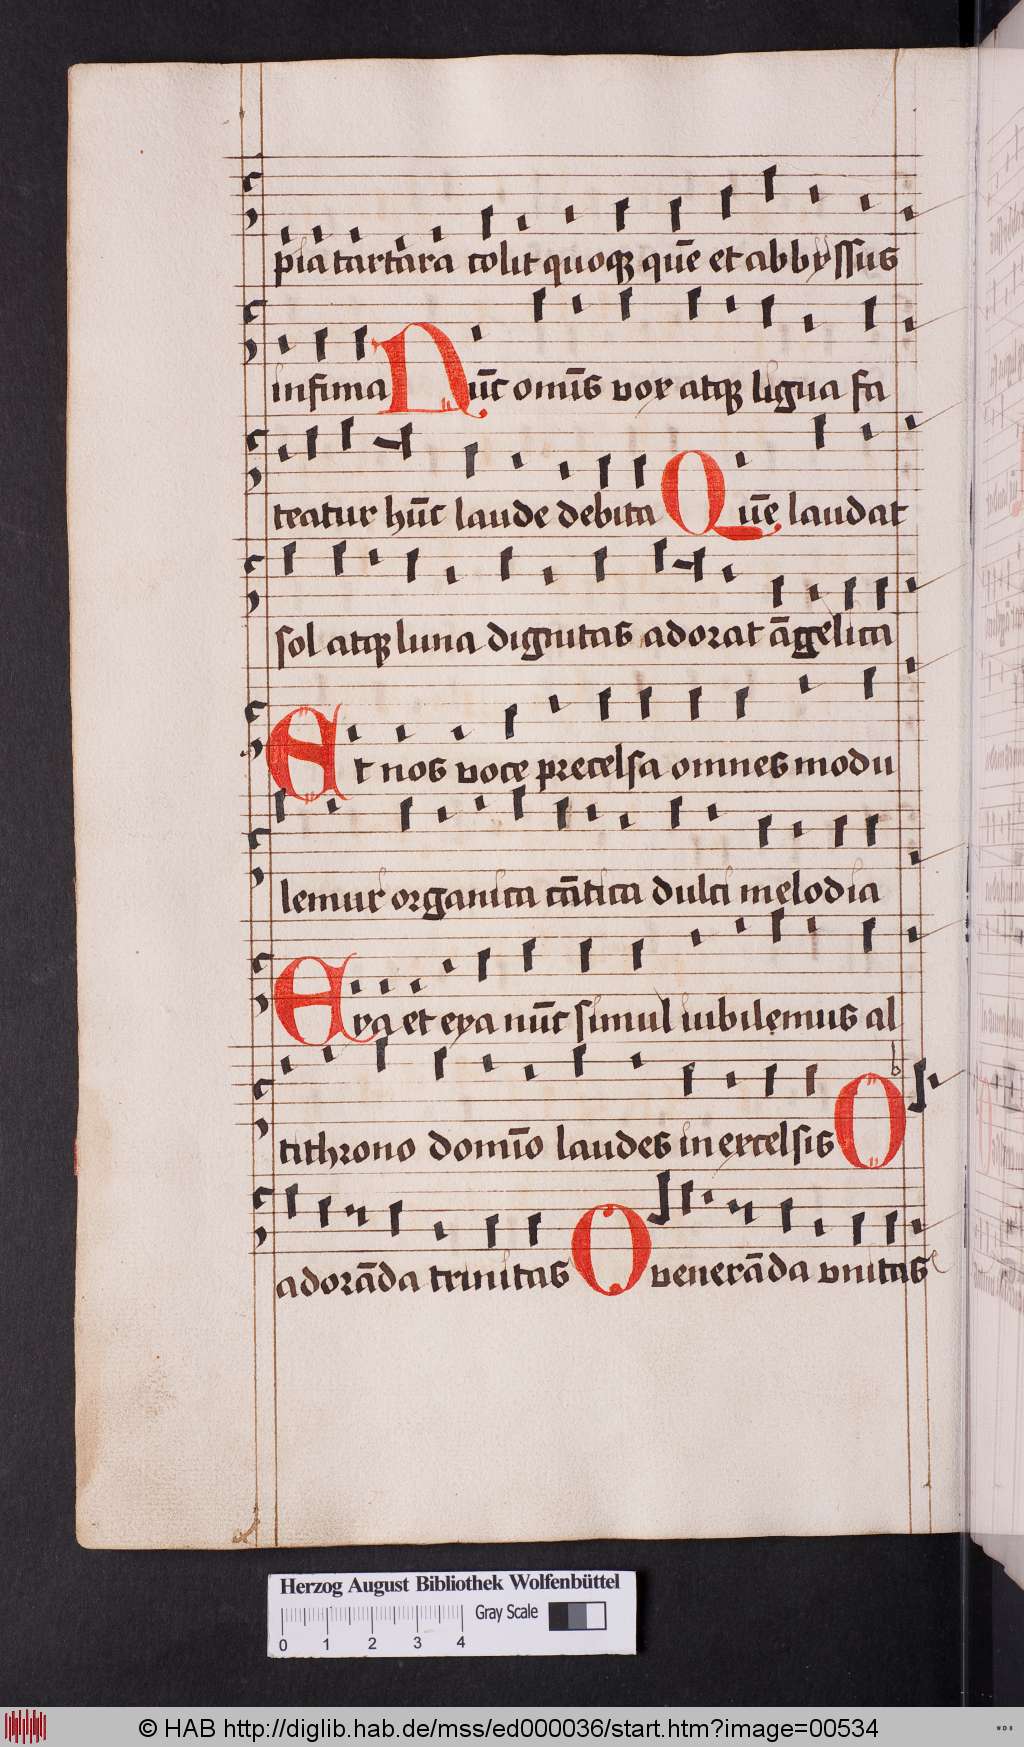 pia tartara colit quoqꝫ quē et abbyssus
infima Nūc omīs vox atqꝫ ligua fa
teatur hūc laude debita Quē laudat
sol atqꝫ luna dignitas adorat āgelica
Et nos voce precelsa omnes modu
lemur organica cātica dulci melodia
Eya et eya nūc simul iubilemus al
tithrono domīo laudes in excelsis O
adorāda trinitas O venerāda vnitas
Herzog August Bibliothek Wolfenbüttel
Gray Scale
0 1 2 3 4
© HAB http://diglib.hab.de/mss/ed000036/start.htm?image=00534